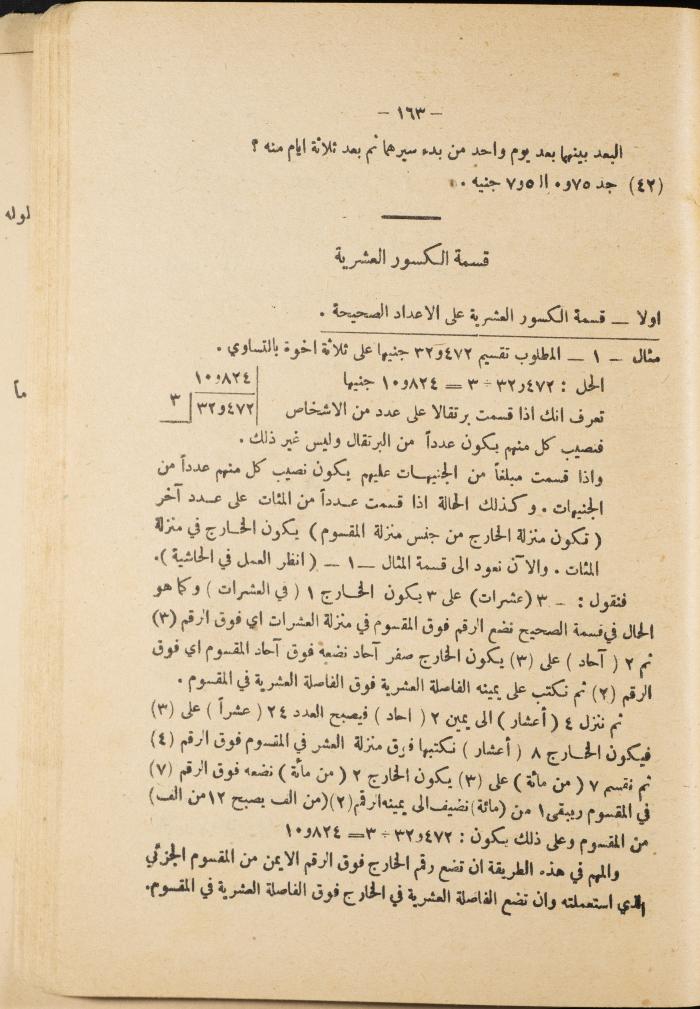 - ١٦٣ -
البعد بينهما بعد يوم واحد من بدء سيرهما ثم بعد ثلاثة ايام منه ؟
(٤٢) جد ٧٥و٠ الـ ٥و٧ جنيه .
قسمة الكسور العشرية
اولا — قسمة الكسور العشرية على الاعداد الصحيحة .
مثال — ١ — المطلوب تقسيم ٤٧٢و٣٢ جنيها على ثلاثة اخوة بالتساوي .
الحل : ٤٧٢و٣٢ ÷ ٣ = ٨٢٤و١٠ جنيها
٨٢٤و١٠
٤٧٢و٣٢ ٣
تعرف انك اذا قسمت برتقالا على عدد من الاشخاص
فنصيب كل منهم يكون عدداً من البرتقال وليس غير ذلك .
واذا قسمت مبلغاً من الجنيهات عليهم يكون نصيب كل منهم عدداً من
الجنيهات . وكذلك الحالة اذا قسمت عدداً من المئات على عدد آخر
( تكون منزلة الخارج من جنس منزلة المقسوم ) يكون الخارج في منزلة
المئات . والآن نعود الى قسمة المثال — ١ — ( انظر العمل في الحاشية ) .
فنقول : — ٣ (عشرات) على ٣ يكون الخارج ١ ( في العشرات ) وكما هو
الحال في قسمة الصحيح نضع الرقم فوق المقسوم في منزلة العشرات اي فوق الرقم (٣)
ثم ٢ ( آحاد ) على (٣) يكون الخارج صفر آحاد نضعه فوق آحاد المقسوم اي فوق
الرقم (٢) ثم نكتب على يمينه الفاصلة العشرية فوق الفاصلة العشرية في المقسوم .
ثم ننزل ٤ ( أعشار ) الى يمين ٢ ( احاد ) فيصبح العدد ٢٤ ( عشراً ) على (٣)
فيكون الخارج ٨ ( أعشار ) نكتبها فوق منزلة العشر في المقسوم فوق الرقم (٤)
ثم نقسم ٧ ( من مائة ) على (٣) يكون الخارج ٢ ( من مائة ) نضعه فوق الرقم (٧)
في المقسوم ويبقى ١ من (مائة) نضيف الى يمينه الرقم (٢) (من الف يصبح ١٢ من الف)
من المقسوم وعلى ذلك يكون : ٤٧٢و٣٢ ÷ ٣ = ٨٢٤و١٠
والمهم في هذه الطريقة ان تضع رقم الخارج فوق الرقم الايمن من المقسوم الجزئي
الذي استعملته وان تضع الفاصلة العشرية في الخارج فوق الفاصلة العشرية في المقسوم.
لوله
ما